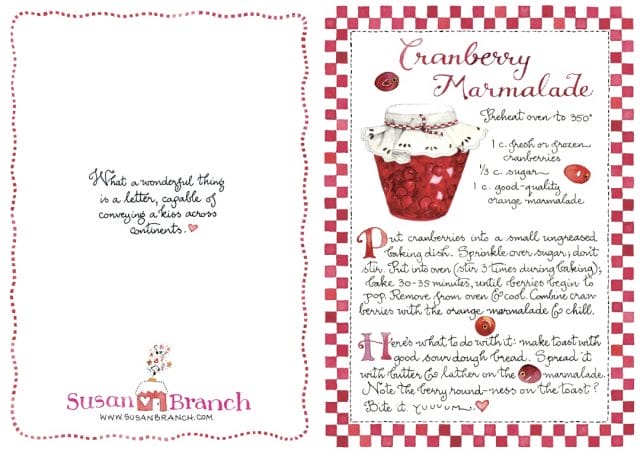 What a wonderful thing
is a letter, capable of
conveying a kiss across
continents.
Susan Branch
WWW.SUSANBRANCH.COM
Cranberry
Marmalade
Preheat oven to 350°
1 c. fresh or frozen
cranberries
1/3 c. sugar
1 c. good-quality
orange marmalade
Put cranberries into a small ungreased
baking dish. Sprinkle over sugar; don't
stir. Put into oven (stir 3 times during baking);
bake 30-35 minutes, until berries begin to
pop. Remove from oven & cool. Combine cran-
berries with the orange marmalade & chill.
Here's what to do with it: make toast with
good sour dough bread. Spread it
with butter & lather on the marmalade.
Note the berry round-ness on the toast?
Bite it. Yuuuum.